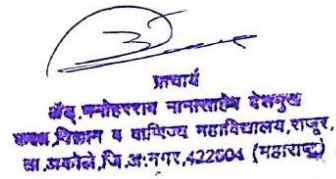 प्राचार्य
ॲड्.मनोहरराव नानासाहेब देशमुख
कला,विज्ञान व वाणिज्य महाविद्यालय,राजूर,
ता.अकोले,जि.अ.नगर,422604 (महाराष्ट्र)